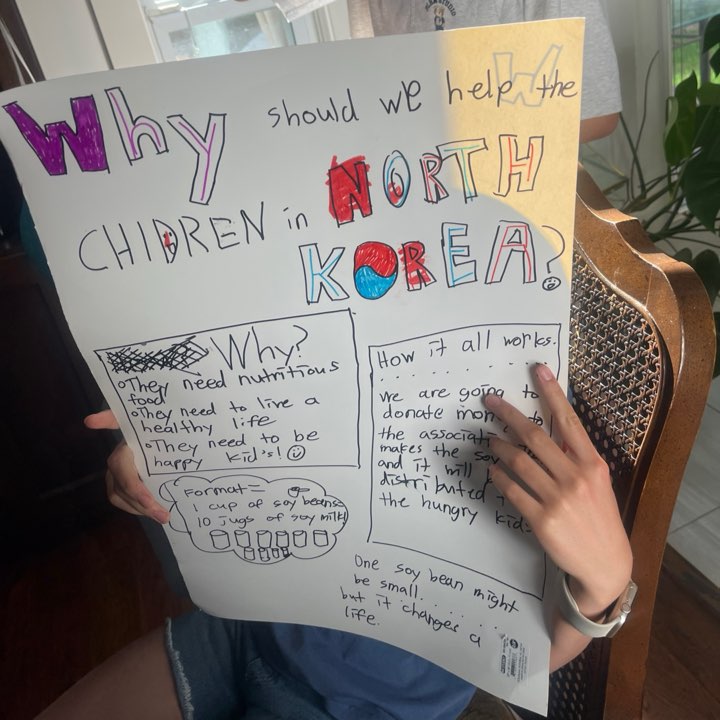 Why should we help the
CHIDREN in NORTH
KOREA?
Why?
They need nutritious
food
They need to live a
healthy life
They need to be
happy kid's!
Format =
1 cup of soy beans =
10 jugs of soy milk!
How it all works.
we are going to
donate to
the
makes the
and it will
distributed
the hungry kids
One soy bean might
be small.......
but it changes a
life.